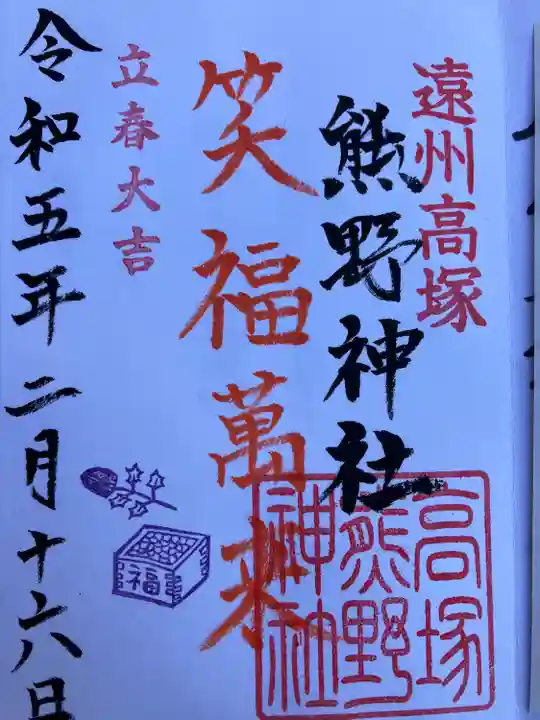 遠州高塚
熊野神社
笑福萬来
立春大吉
令和五年二月十六日
高塚
熊野
神社
福